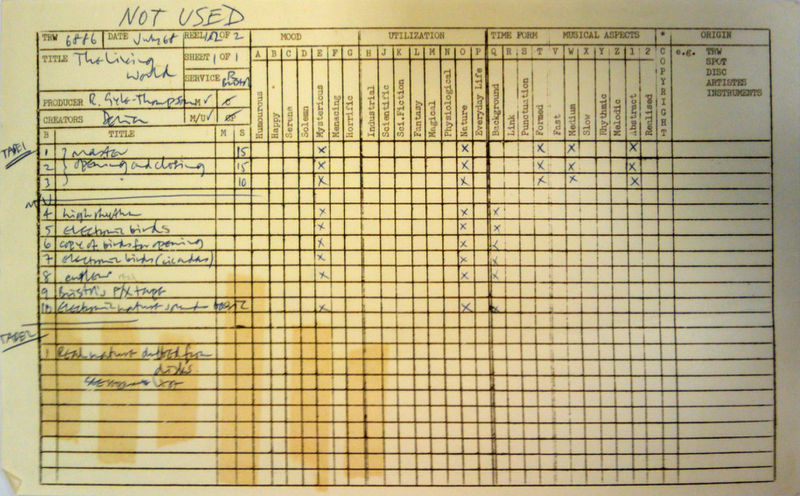 NOT USED
TRW 6886 DATE July 68 REEL 1/2 OF 2
MOOD UTILIZATION TIME FORM MUSICAL ASPECTS * ORIGIN
TITLE The Living World
SHEET 1 OF 1
SERVICE
PRODUCER R. Gyle-Thompson M ✓ S
CREATORS Delia M/U ✓
A B C D E F G H J K L M N O P Q R S T V W X Y Z 1 2
Humourous Happy Serene Solemn Mysterious Menacing Horrific Industrial Scientific Sci.Fiction Fantasy Magical Physiological Nature Everyday Life Background Link Punctuation Formed Fast Medium Slow Rhythmic Melodic Abstract Realised
COPYRIGHT
e.g. TRW
SPOT
DISC
ARTISTES
INSTRUMENTS
B TITLE M S
TAPE 1
1 } master 15 X X X X X
2 } opening and closing 15 X X X X X
3 } 10 X X X X X
4 high rhythm X X X
5 electronic birds X X X
6 copy of birds for opening X X X
7 electronic birds (cicadas) X X X
8 X X X
9 Bristol's F/X tape
10 Electronic nature X X X
TAPE 2
1 Real nature dubbed from
discs